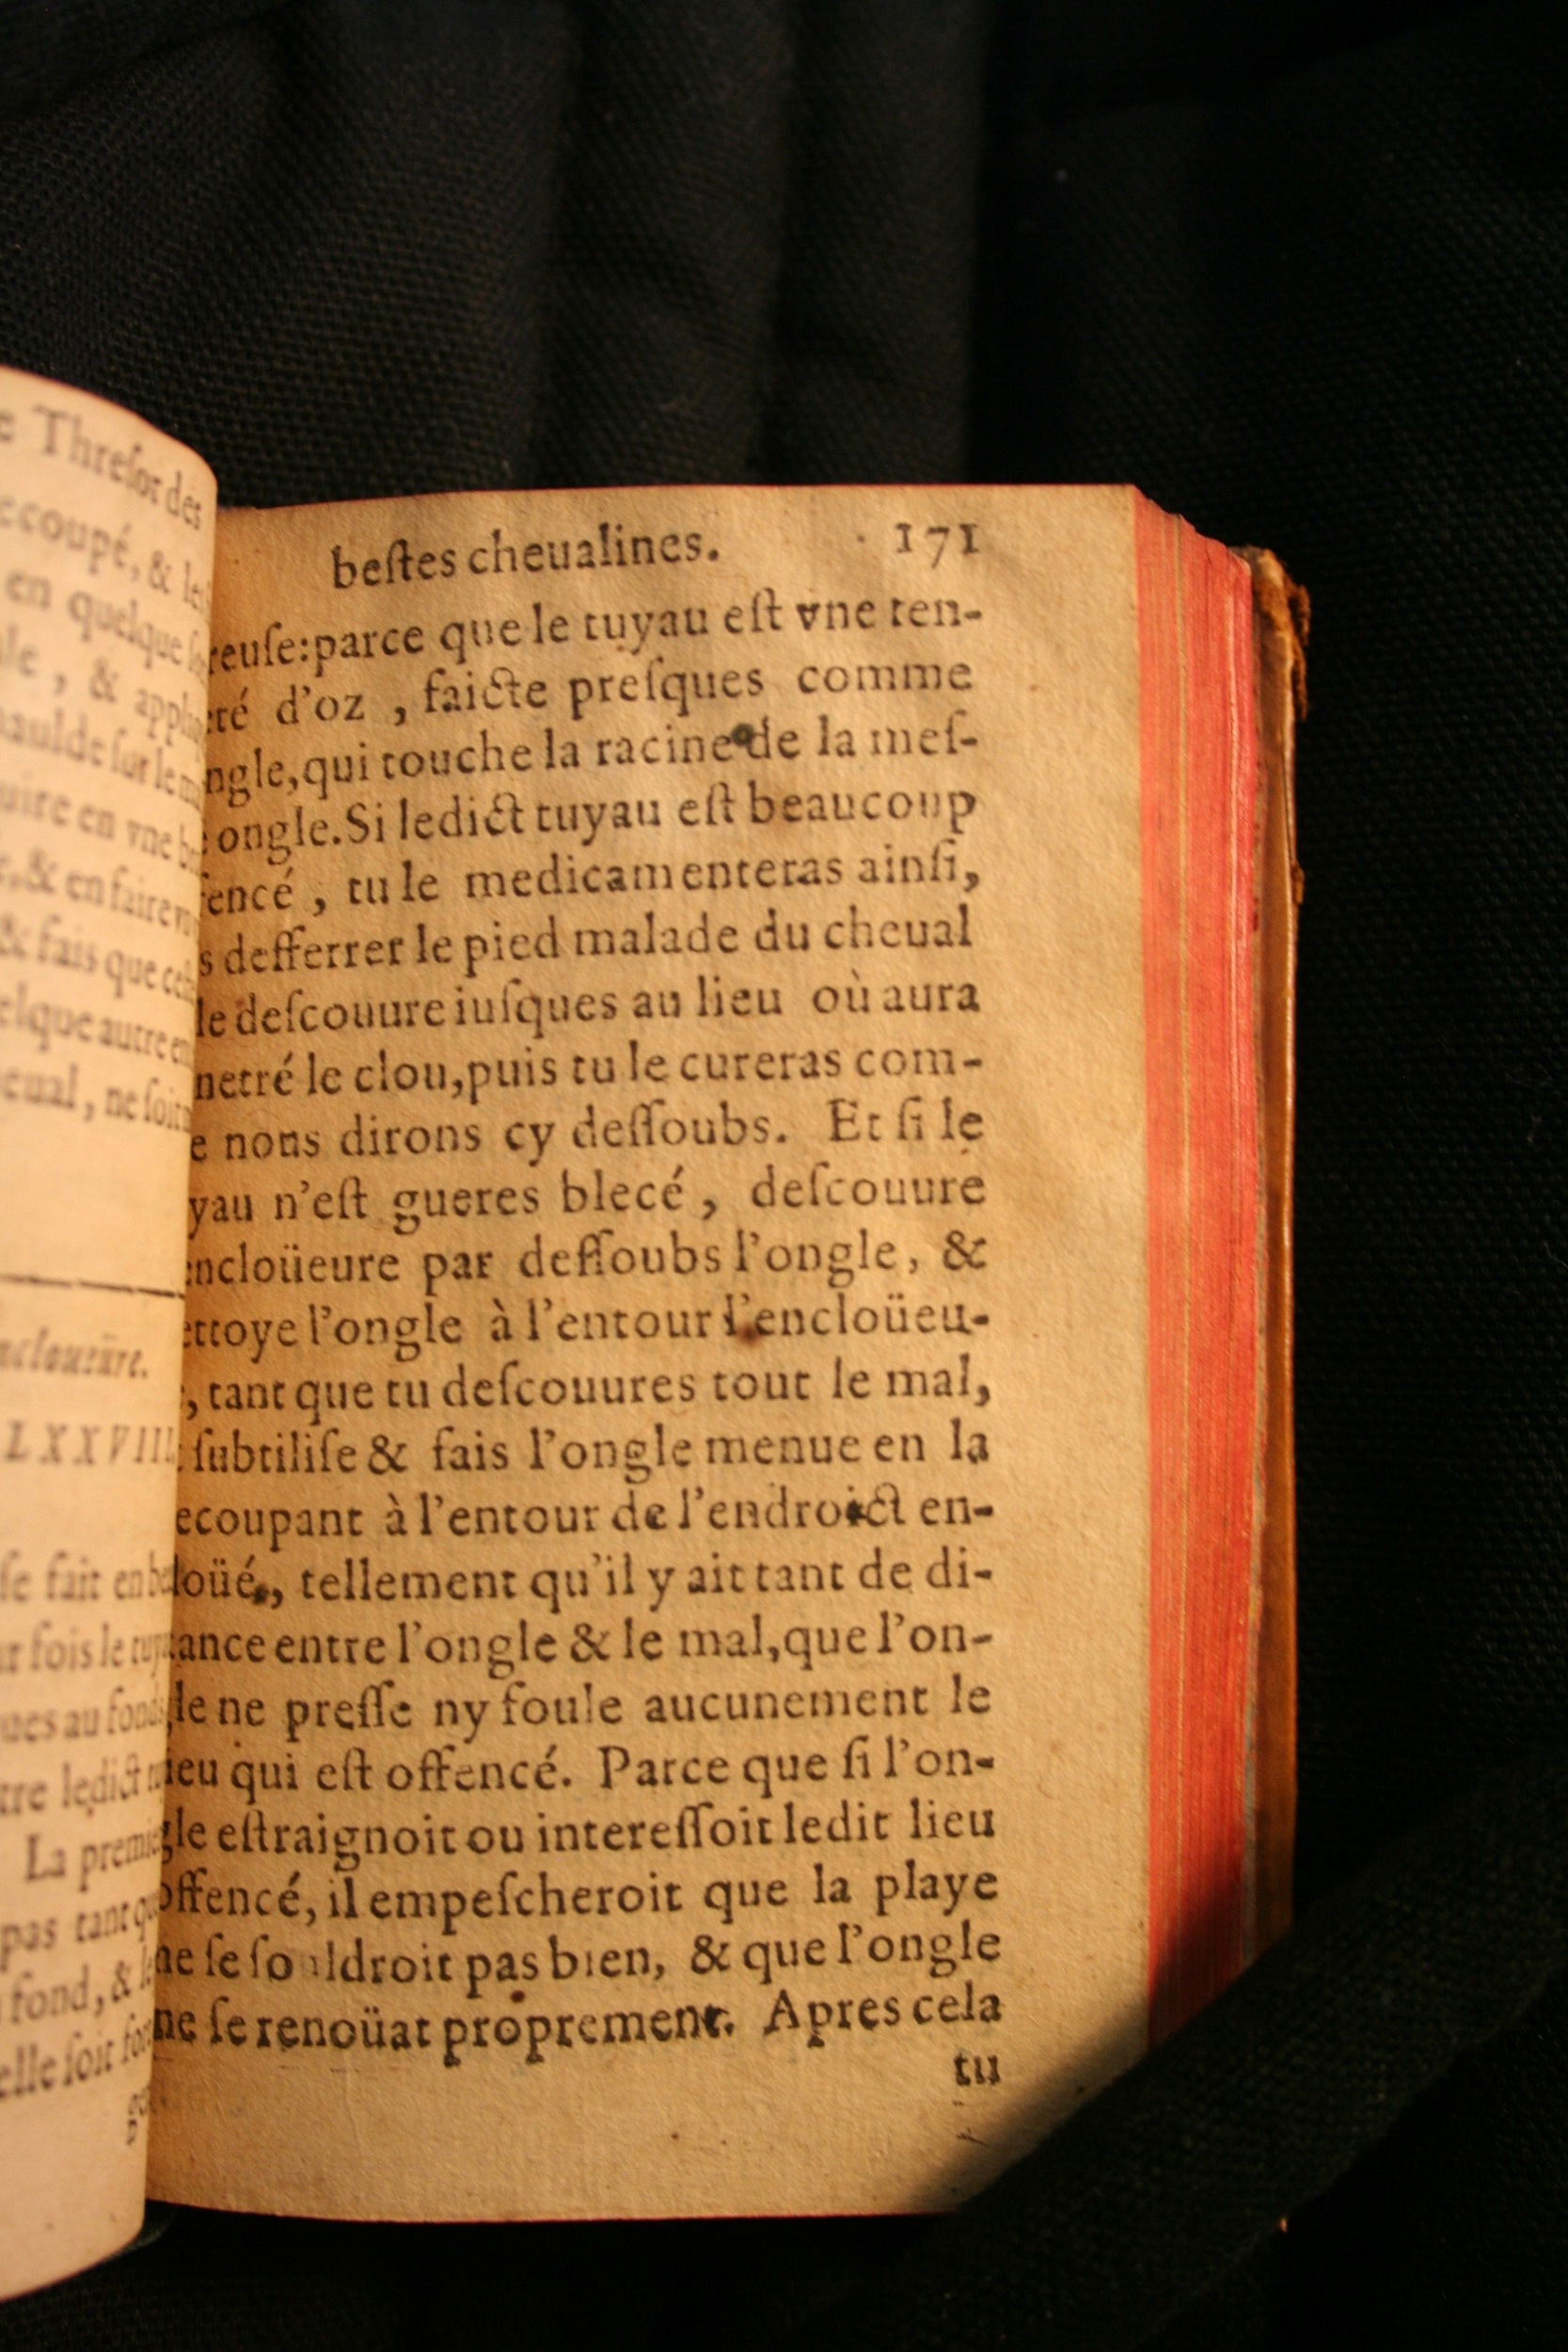 e Threſor des
ecoupé, & le
en quelque
le, & appli
hauldeſur le
uire en vne
& en faire
& fais que
elque autre
eual, ne ſoit
ncloueüre.
LXXVIII
ſe fait en
ur fois le
ques au
tre ledict
La premie
pas tant
fond, &
elle ſoit
beſtes cheualines. 171
reuſe:parce que le tuyau eſt vne ten-
té d'oz , faicte preſques comme
ngle,qui touche la racine de la meſ-
ongle.Si ledict tuyau eſt beaucoup
fencé , tu le medicamenteras ainſi,
s defferrer le pied malade du cheual
le deſcouure iuſques au lieu où aura
netré le clou,puis tu le cureras com-
e nous dirons cy deſſoubs. Et ſi le
yau n'eſt gueres blecé , deſcouure
encloüeure par deſſoubs l'ongle, &
ettoye l'ongle à l'entour l'encloüeu-
, tant que tu deſcouures tout le mal,
ſubtiliſe & fais l'ongle menue en la
ecoupant à l'entour de l'endroict en-
loüé, tellement qu'il y ait tant de di-
tance entre l'ongle & le mal,que l'on-
gle ne preſſe ny foule aucunement le
lieu qui eſt offencé. Parce que ſi l'on-
gle eſtraignoit ou intereſſoit ledit lieu
offencé, il empeſcheroit que la playe
ne ſe ſouldroit pas bien, & que l'ongle
ne ſe renoüat proprement. Apres cela
tu